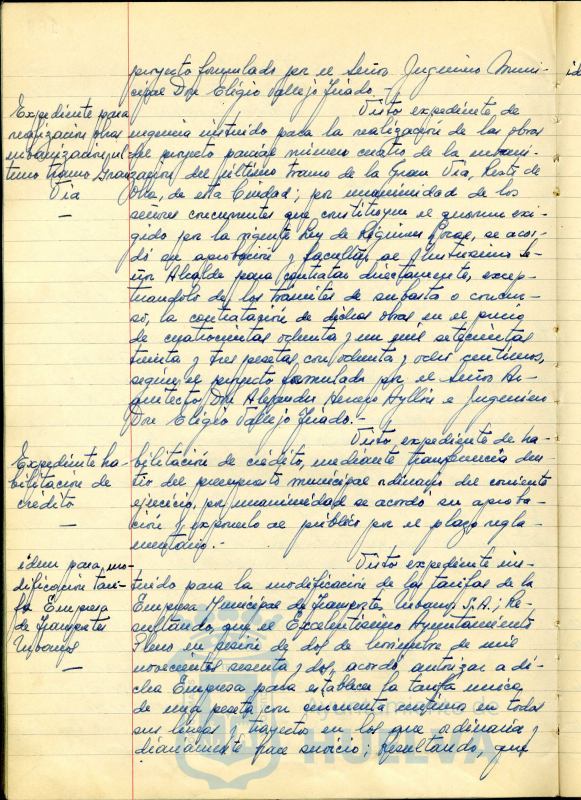 proyecto formulado por el Señor Ingeniero Muni-
cipal Don Eligio Vallejo Tirado.-
Expediente para realización obras urbanización último tramo Gran Vía
Visto expediente de
urgencia instruido para la realización de las obras
del proyecto parcial número cuatro de la urbani-
zación del último tramo de la Gran Vía, Resto de
Oeste, de esta Ciudad; por unanimidad de los
señores concurrentes que constituyen el quorum exi-
gido por la vigente Ley de Régimen Local, se acor-
dó su aprobación y facultar al Ilustrísimo Se-
ñor Alcalde para contratar directamente, excep-
tuándolo de los trámites de subasta o concur-
so, la contratación de dichas obras en el precio
de cuatrocientas ochenta y un mil setecientas
treinta y tres pesetas con ochenta y ocho céntimos,
según el proyecto formulado por el Señor Ar-
quitecto Don Alejandro Herrero Ayllón e Ingeniero
Don Eligio Vallejo Tirado.-
Expediente habilitación de crédito
Visto, expediente de ha-
bilitación de crédito, mediante transferencia den-
tro del presupuesto municipal ordinario del corriente
ejercicio, por unanimidad se acordó su aproba-
ción y exponerlo al público por el plazo regla-
mentario.-
idem para mo-
dificación tari-
fas Empresa
de Transportes
Urbanos
Visto expediente ins-
truido para la modificación de las tarifas de la
Empresa Municipal de Transportes Urbanos S.A.; Re-
sultando que el Excelentísimo Ayuntamiento
Pleno en sesión de dos de Noviembre de mil
novecientos sesenta y dos, acordó autorizar a di-
cha Empresa para establecer la tarifa única
de una peseta con cincuenta céntimos en todas
sus líneas y trayectos en los que ordinaria y
diariamente hace servicio; Resultando, que
HUELVA